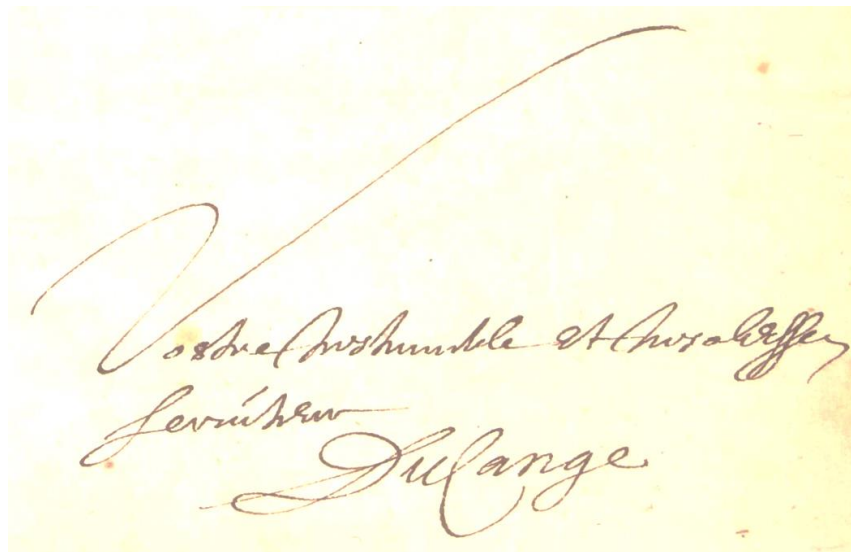 Vostre treshumble et tresobeissen
serviteur
DuCange